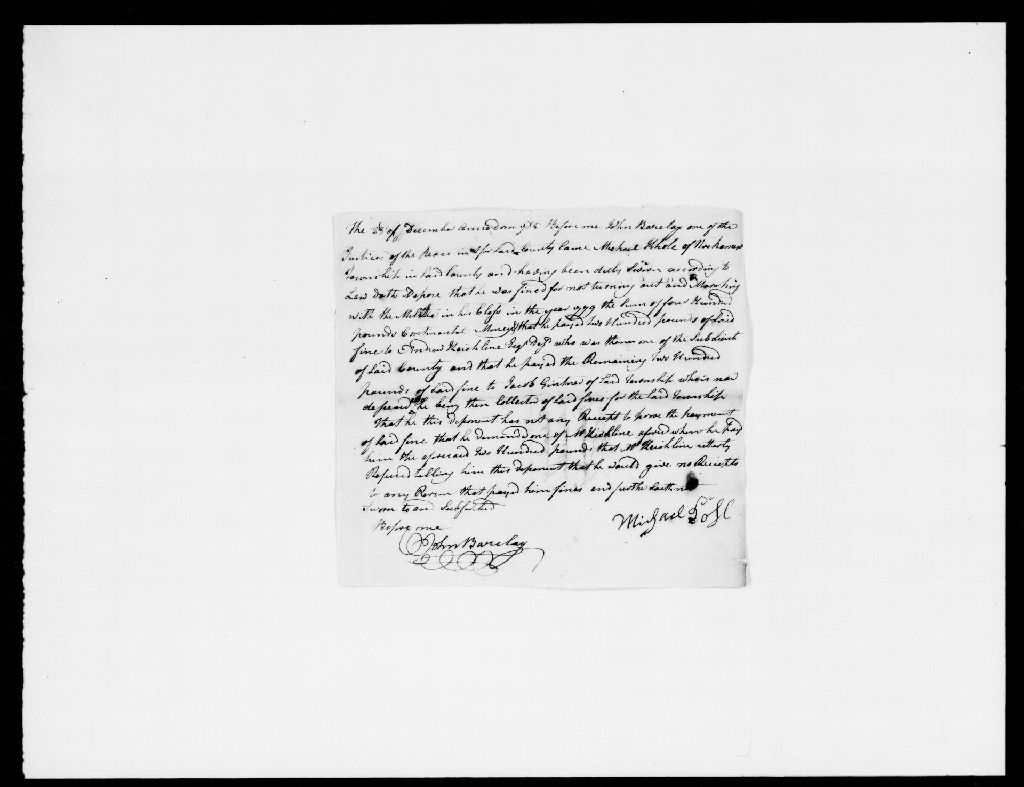 The 28 of December annodom 978 Before me John Barclay one of the
Justices of the Peace in & for Said County Came Michael of Nockamixon
Township in Said County and having been duly Sworn according to
Law Doth Depose that he was fined for not turning out and Marching
with the Militia in his Class in the year 1779 the Sum of four Hundred
pounds Continental Money that he payed two Hundred pounds of Said
fine to Andrew Keichline Esqr who was then one of the Sub Lieut
of Said County and that he payed the Remaining Two Hundred
pounds of Said fine to Jacob of Said Township who is now
he being then Collector of Said fines for the Said Township
That he this deponent has not any Receipt to prove the payment
of Said fine that he demanded one of Mr Keichline when he Payd
him the aforesaid Two Hundred pounds that Mr Keichline utterly
Refused telling him this deponent that he would give no Receipts
to any Person that payed him fines and further Saith not
Sworn to and Subscribed
Before me
Michael
John Barclay